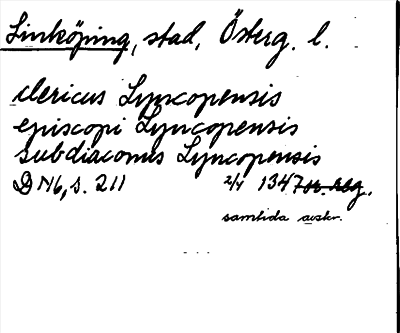 Linköping, stad, Österg. l.
clericus Lyncopensis
episcopi Lyncopensis
subdiaconus Lyncopensis
DN6, s. 211 2/4 1347 or. reg.
samtida avskr.